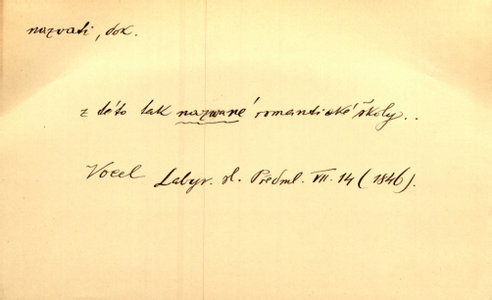 nazvati, dok.
z této tak nazwané romantické školy..
Vocel Labyr. sl. Předml. VII. 14 (1846).